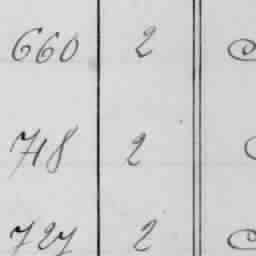 660 2
718 2
727 2